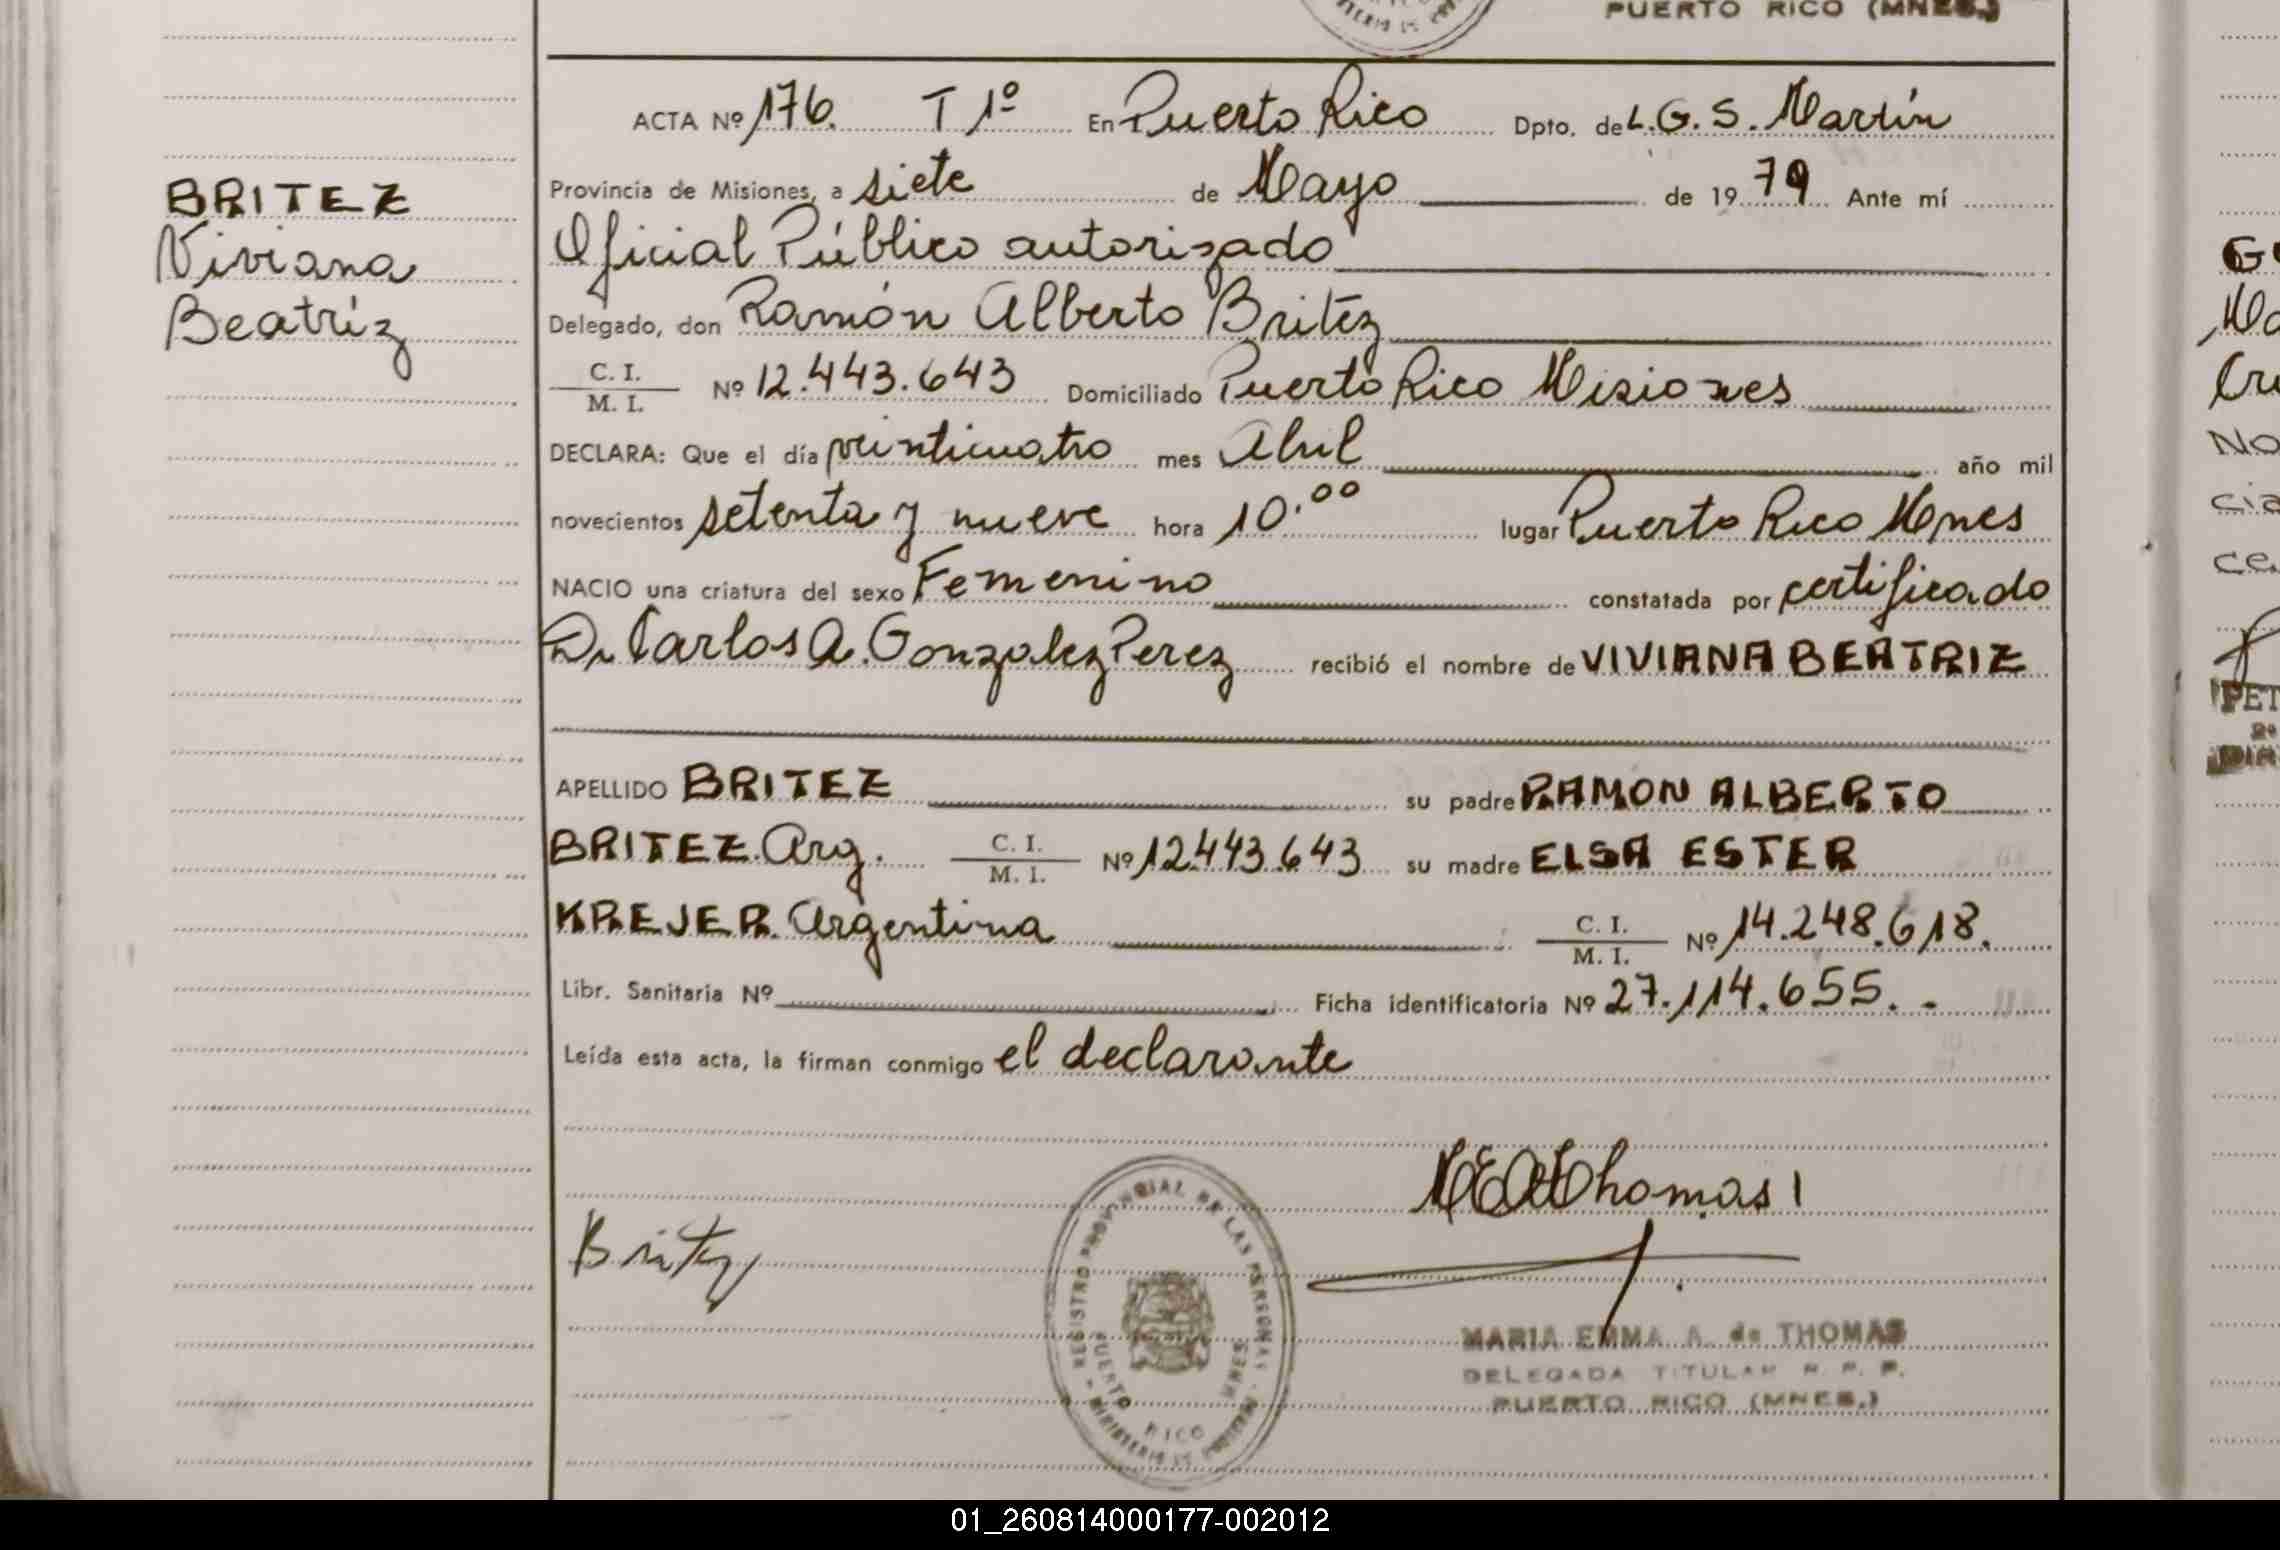 PUERTO RICO (MNES.)
ACTA Nº 176. T 1º En Puerto Rico Dpto. de L. G. S. Martín
Provincia de Misiones, a siete de Mayo de 19 79 Ante mí
Oficial Público autorizado
Delegado, don Ramón Alberto Britez
C. I.
M. I. Nº 12.443.643 Domiciliado Puerto Rico Misiones
DECLARA: Que el día veinticuatro mes Abril año mil
novecientos setenta y nueve hora 10.00 lugar Puerto Rico Mnes
NACIO una criatura del sexo Femenino constatada por certificado
Dr Carlos A. Gonzalez Perez recibió el nombre de VIVIANA BEATRIZ
APELLIDO BRITEZ su padre RAMON ALBERTO
BRITEZ. Arg. C. I.
M. I. Nº 12.443.643 su madre ELSA ESTER
KREJER. Argentina C. I.
M. I. Nº 14.248.618.
Libr. Sanitaria Nº Ficha identificatoria Nº 27.114.655.
Leída esta acta, la firman conmigo el declarante
BRITEZ
Viviana
Beatríz
Britez
Thomas
REGISTRO PROVINCIAL DE LAS PERSONAS
PUERTO RICO MNES
MARIA EMMA A. de THOMAS
DELEGADA TITULAR R. P. P.
PUERTO RICO (MNES.)
01_260814000177-002012